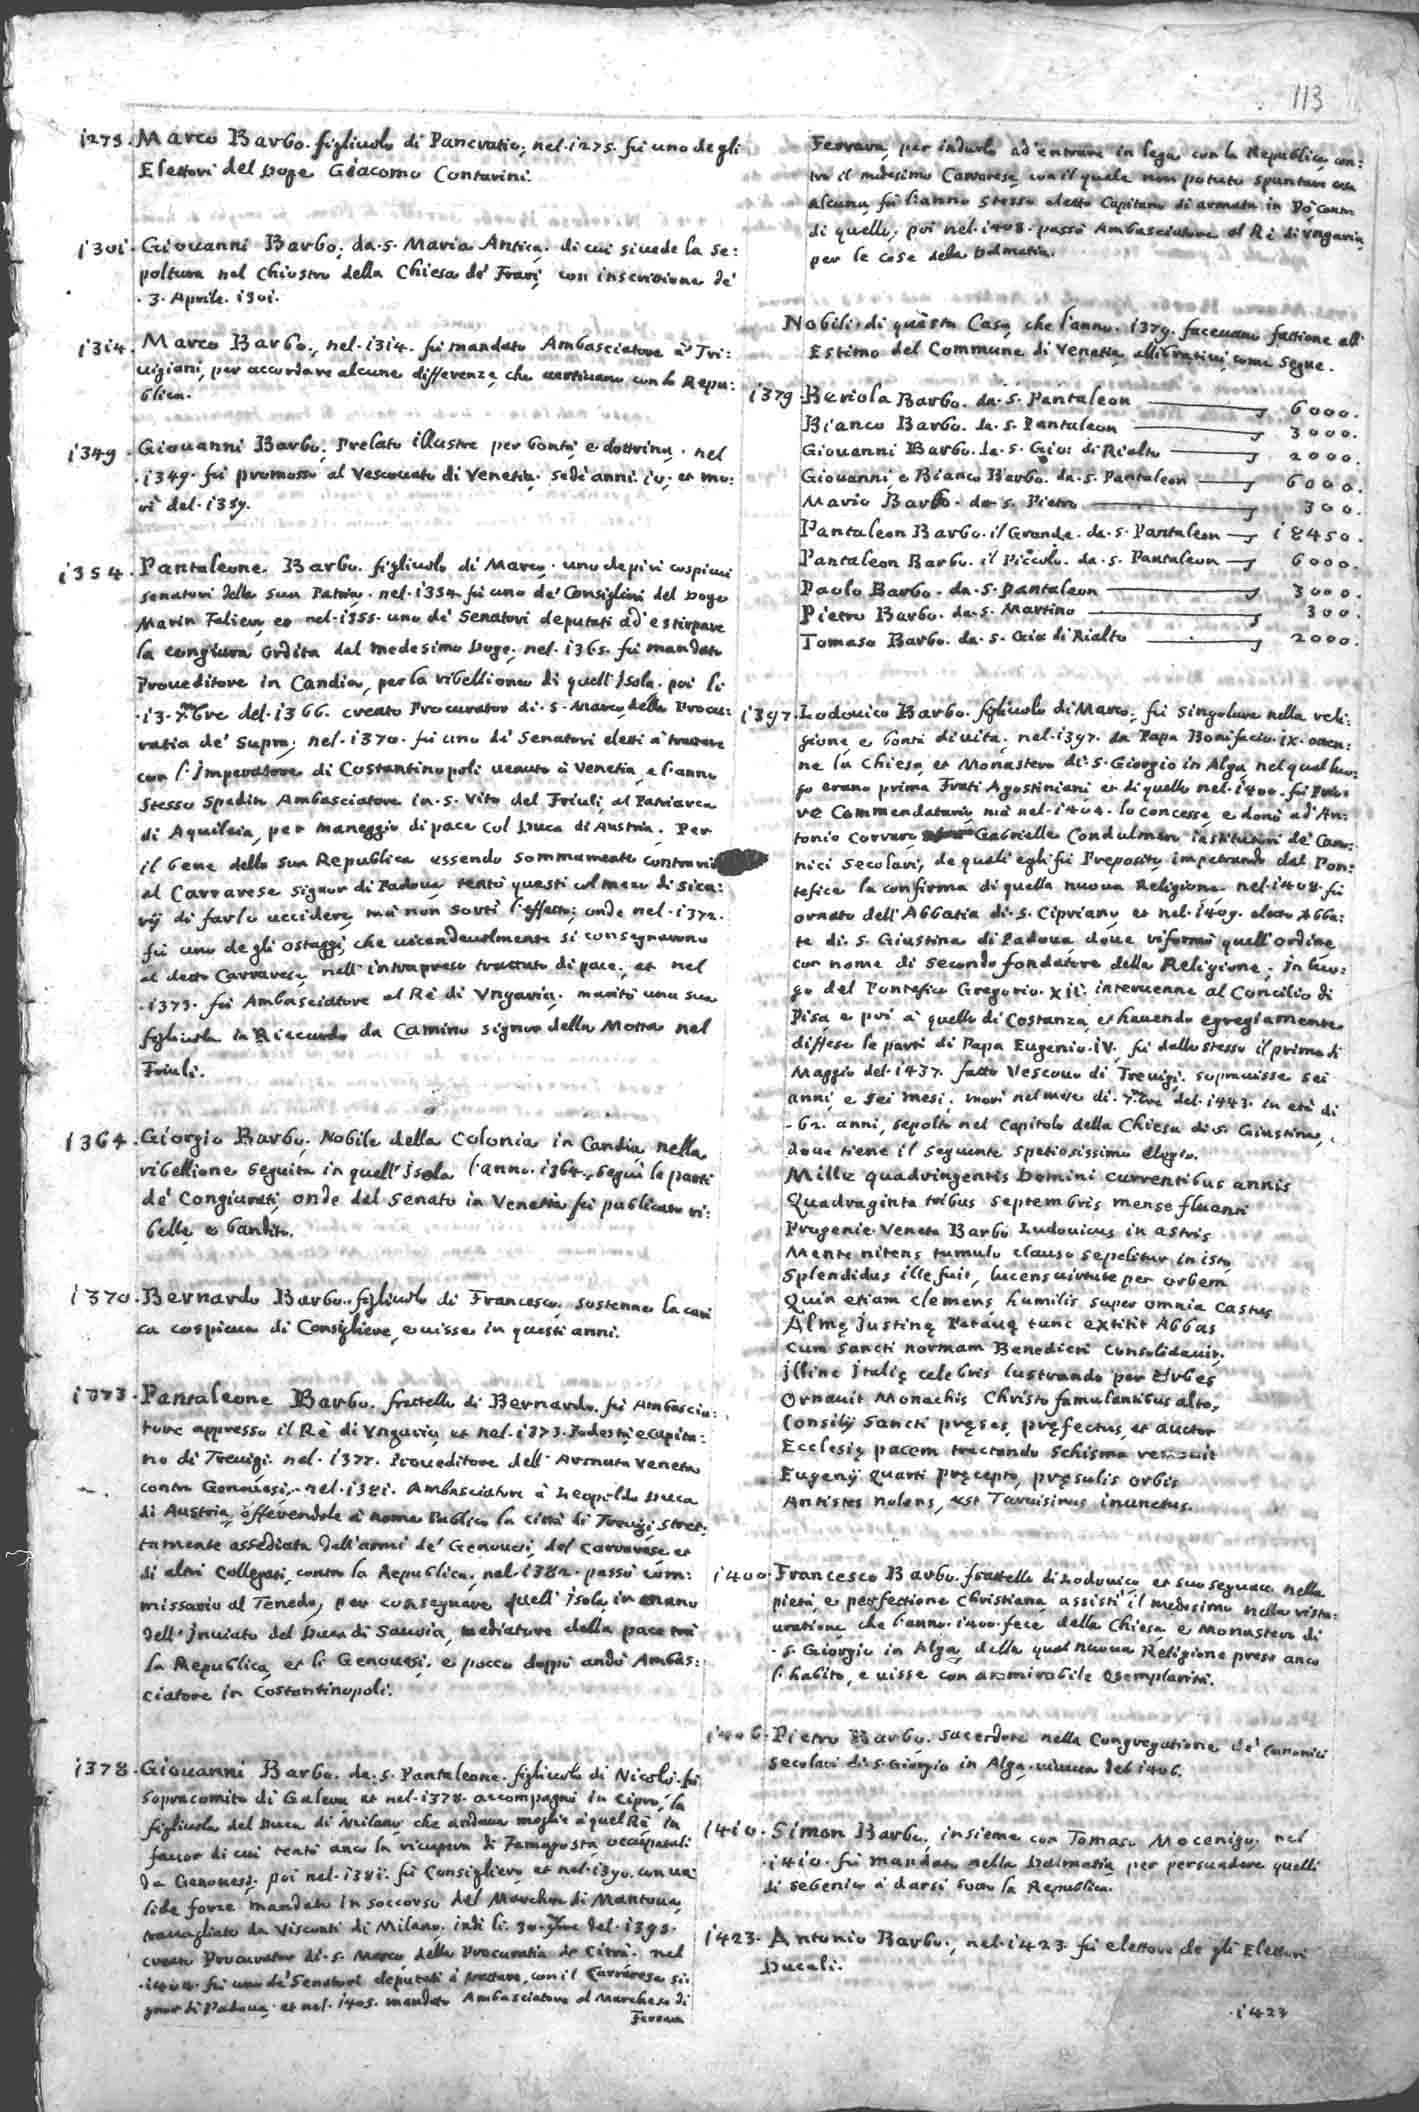 113
1275. Marco Barbo. figliuolo di Pancratio; nel. 1275. fu uno degli
Elettori del Doge Giacomo Contarini.
1301. Giovanni Barbo, da. S. Maria Antica, di cui si vede la se:
poltura nel Chiostro della Chiesa de' Frari, con inscrittione de'
. 3. Aprile. 1301.
1314. Marco Barbo, nel. 1314. fu mandato Ambasciatore à Tri:
uigiani, per accordare alcune differenze, che vertivano con la Repu:
blica.
1349. Giouanni Barbo, Prelato illustre per bontà e dottrina, nel
. 1349. fu promosso al Vescouato di Venetia. sedè anni. 10. et mo:
rì del. 1359.
1354. Pantaleone Barbo. figliuolo di Marco. uno de piu cospicui
senatori della sua Patria. nel. 1354. fu uno de' Consiglieri del Doge
Marin Falier, et nel. 1355. uno di Senatori deputati ad estirpare
la congiura ordita dal medesimo Doge; nel. 1365. fu mandato
Proueditore in Candia, per la ribellione di quell' Isola. poi li
. 13. 7bre del. 1366. creato Procurator di. S. Marco, della Procu:
ratia de' supra; nel. 1370. fu uno de' Senatori eletti à trattare
con l'Imperatore di Costantinopoli uenuto à Venetia, e l'anno
stesso spedito Ambasciatore in. S. Vito del Friuli, al Patriarca
di Aquileia, per maneggio di pace col Duca di Austria. Per
il bene della sua Republica essendo sommamente contrario
al Carrarese signor di Padoua, tentò questi col mezo di sica:
rij di farlo uccidere, mà non sortì l'effetto; onde nel. 1372.
fu uno degli ostaggi, che uicendeuolmente si consegnarono
al detto Carrarese, nell' intrapreso trattato di pace. et nel
. 1373. fu Ambasciatore al Rè di Vngaria. maritò una sua
figliuola in Riccardo da Camino signor della Motta nel
Friuli.
1364. Giorgio Barbo, Nobile della Colonia in Candia, nella
ribellione seguita in quell' Isola l'anno. 1364. seguì le parti
de' Congiurati, onde dal Senato in Venetia fu publicato ri:
belle, e bandito.
1370. Bernardo Barbo. figliuolo di Francesco, sostenne la cari
ca cospicua di Consigliere, e uisse in questi anni.
1373. Pantaleone Barbo. fratello di Bernardo. fu Ambascia:
tore appresso il Rè di Vngaria, et nel. 1373. Podestà, e Capita:
no di Treuigi. nel. 1377. Proueditore dell' Armata Veneta
contra Genouesi, nel. 1381. Ambasciatore à Leopoldo Duca
di Austria, offerendole à nome Publico la Città di Treuigi, stret:
tamente assediata dall'armi de' Genouesi, del Carrarese et
di altri Collegati, contra la Republica; nel. 1382. passò Com:
missario al Tenedo, per consegnare quell' Isola in mano
dell' Inuiato del Duca di Sauoia, mediatore della pace trà
la Republica, et li Genouesi. e pocco doppò andò Ambas:
ciatore in Costantinopoli.
1378. Giouanni Barbo. da. S. Pantaleone. figliuolo di Nicolò. fu
sopracomito di Galera et nel. 1378. accompagnò in Cipro, la
figliuola del Duca di Milano, che andaua moglie à quel Rè in
fauor di cui tentò anco la ricupera di Famagosta, occupatali
da Genouesi. poi nel. 1381. fu Consigliere, et nel. 1390. con ua
lide forze mandato in soccorso del Marchese di Mantoua,
trauagliato da Visconti di Milano, indi li. 30. del. 1395.
creato Procurator di. S. Marco, della Procuratia de Citrà. nel
. 1404. fu uno de' Senatori deputati à trattare, con il Carrarese si:
gnor di Padoua, et nel. 1405. mandato Ambasciatore al Marchese di
Ferrara
Ferrara, per indurlo ad entrare in lega con la Republica, con:
tra il medesimo Carrarese, con il quale non potuto spuntare cosa
alcuna, fu l'anno stesso eletto Capitano di armata in Pò, contra
di quello; poi nel. 1408. passò Ambasciatore al Rè di Vngaria,
per le cose della Dalmatia.
Nobili di questa Casa, che l'anno. 1379. faceuano fattione all'
Estimo del Commune di Venetia, allibrati, come segue.
1379. Beriola Barbo. da. S. Pantaleon 6000.
Bianco Barbo. da. S. Pantaleon 3000.
Giouanni Barbo. da. S. Gio: di Rialto 2000.
Giouanni, e Bianco Barbo. da. S. Pantaleon 6000.
Mario Barbo. da. S. Pietro 300.
Pantaleon Barbo. il Grande. da. S. Pantaleon 18450.
Pantaleon Barbo. il Piccolo. da. S. Pantaleon 6000.
Paolo Barbo. da. S. Pantaleon 3000.
Pietro Barbo. da. S. Martino 300.
Tomaso Barbo. da. S. Gio: di Rialto 2000.
1397. Lodouico Barbo. figliuolo di Marco, fu singolare nella reli:
gione, e bontà di uita, nel. 1397. da Papa Bonifacio. IX. otten:
ne la Chiesa, et Monastero di. S. Giorgio in Alga, nel qual luo:
go erano prima Frati Agostiniani et di quello nel. 1400. fu Prio:
re Commendatario, mà nel. 1404. lo concesse, e donò ad An:
tonio Corraro, Gabrielle Condulmero institutori de' Cano:
nici Secolari, de quali egli fu Preposito, impetrando dal Pon:
tefice la confirma di quella nuoua Religione, nel. 1408. fu
ornato dell' Abbatia di. S. Cipriano, et nel. 1409. eletto Abba:
te di. S. Giustina di Padoua doue riformò quell'ordine
con nome di secondo fondatore della Religione; In luo:
go del Pontefice Gregorio. XII. interuenne al Concilio di
Pisa e poi à quello di Costanza, et hauendo egregiamente
diffese le parti di Papa Eugenio. IV. fu dallo stesso il primo di
Maggio del. 1437. fatto Vescouo di Treuigi. soprauisse sei
anni, e sei mesi, morì nel mese di. 7bre del. 1443. in età di
. 62. anni, sepolto nel Capitolo della Chiesa di S. Giustina,
doue tiene il seguente spetiosissimo elogio.
Mille quadringentis Domini currentibus annis
Quadraginta tribus septembris mense fluenti
Progenie Veneta Barbo Ludouicus in astris
Mente nitens tumulo clauso sepelitur in isto,
Splendidus ille fuit, lucens uirtute per orbem
Quin etiam clemens, humilis, super omnia castus,
Almę Justinę Patauę tunc extitit Abbas
Cum sancti normam Benedicti consolidauit,
Illinc Italię celebris lustrando per Urbes
Ornauit Monachis Christo famulantibus alto,
Consilij Sancti pręses, pręfectus, et auctor
Ecclesię pacem tractando schisma
Eugenij quarti pręcepto, pręsulis orbis
Antistes nolens, est Taruisinus inunctus.
1400. Francesco Barbo. frattello di Lodouico, et suo seguace nella
pietà, e perfettione Christiana, assistì il medesimo nella risto:
uratione, che l'anno. 1400. fece della Chiesa e Monastero di
. S. Giorgio in Alga, della qual nuoua Religione prese anco
l'habito, e uisse con admirabile esemplarità.
1406. Pietro Barbo, sacerdote nella Congregatione de' Canonici
secolari di. S. Giorgio in Alga, uiueua del 1406.
1410. Simon Barbo, insieme con Tomaso Mocenigo, nel
. 1410. fu mandato nella Dalmatia, per persuadere quelli
di Sebenico à darsi sotto la Republica.
1423. Antonio Barbo, nel. 1423. fu elettore de gli Elettori
Ducali.
. 1423